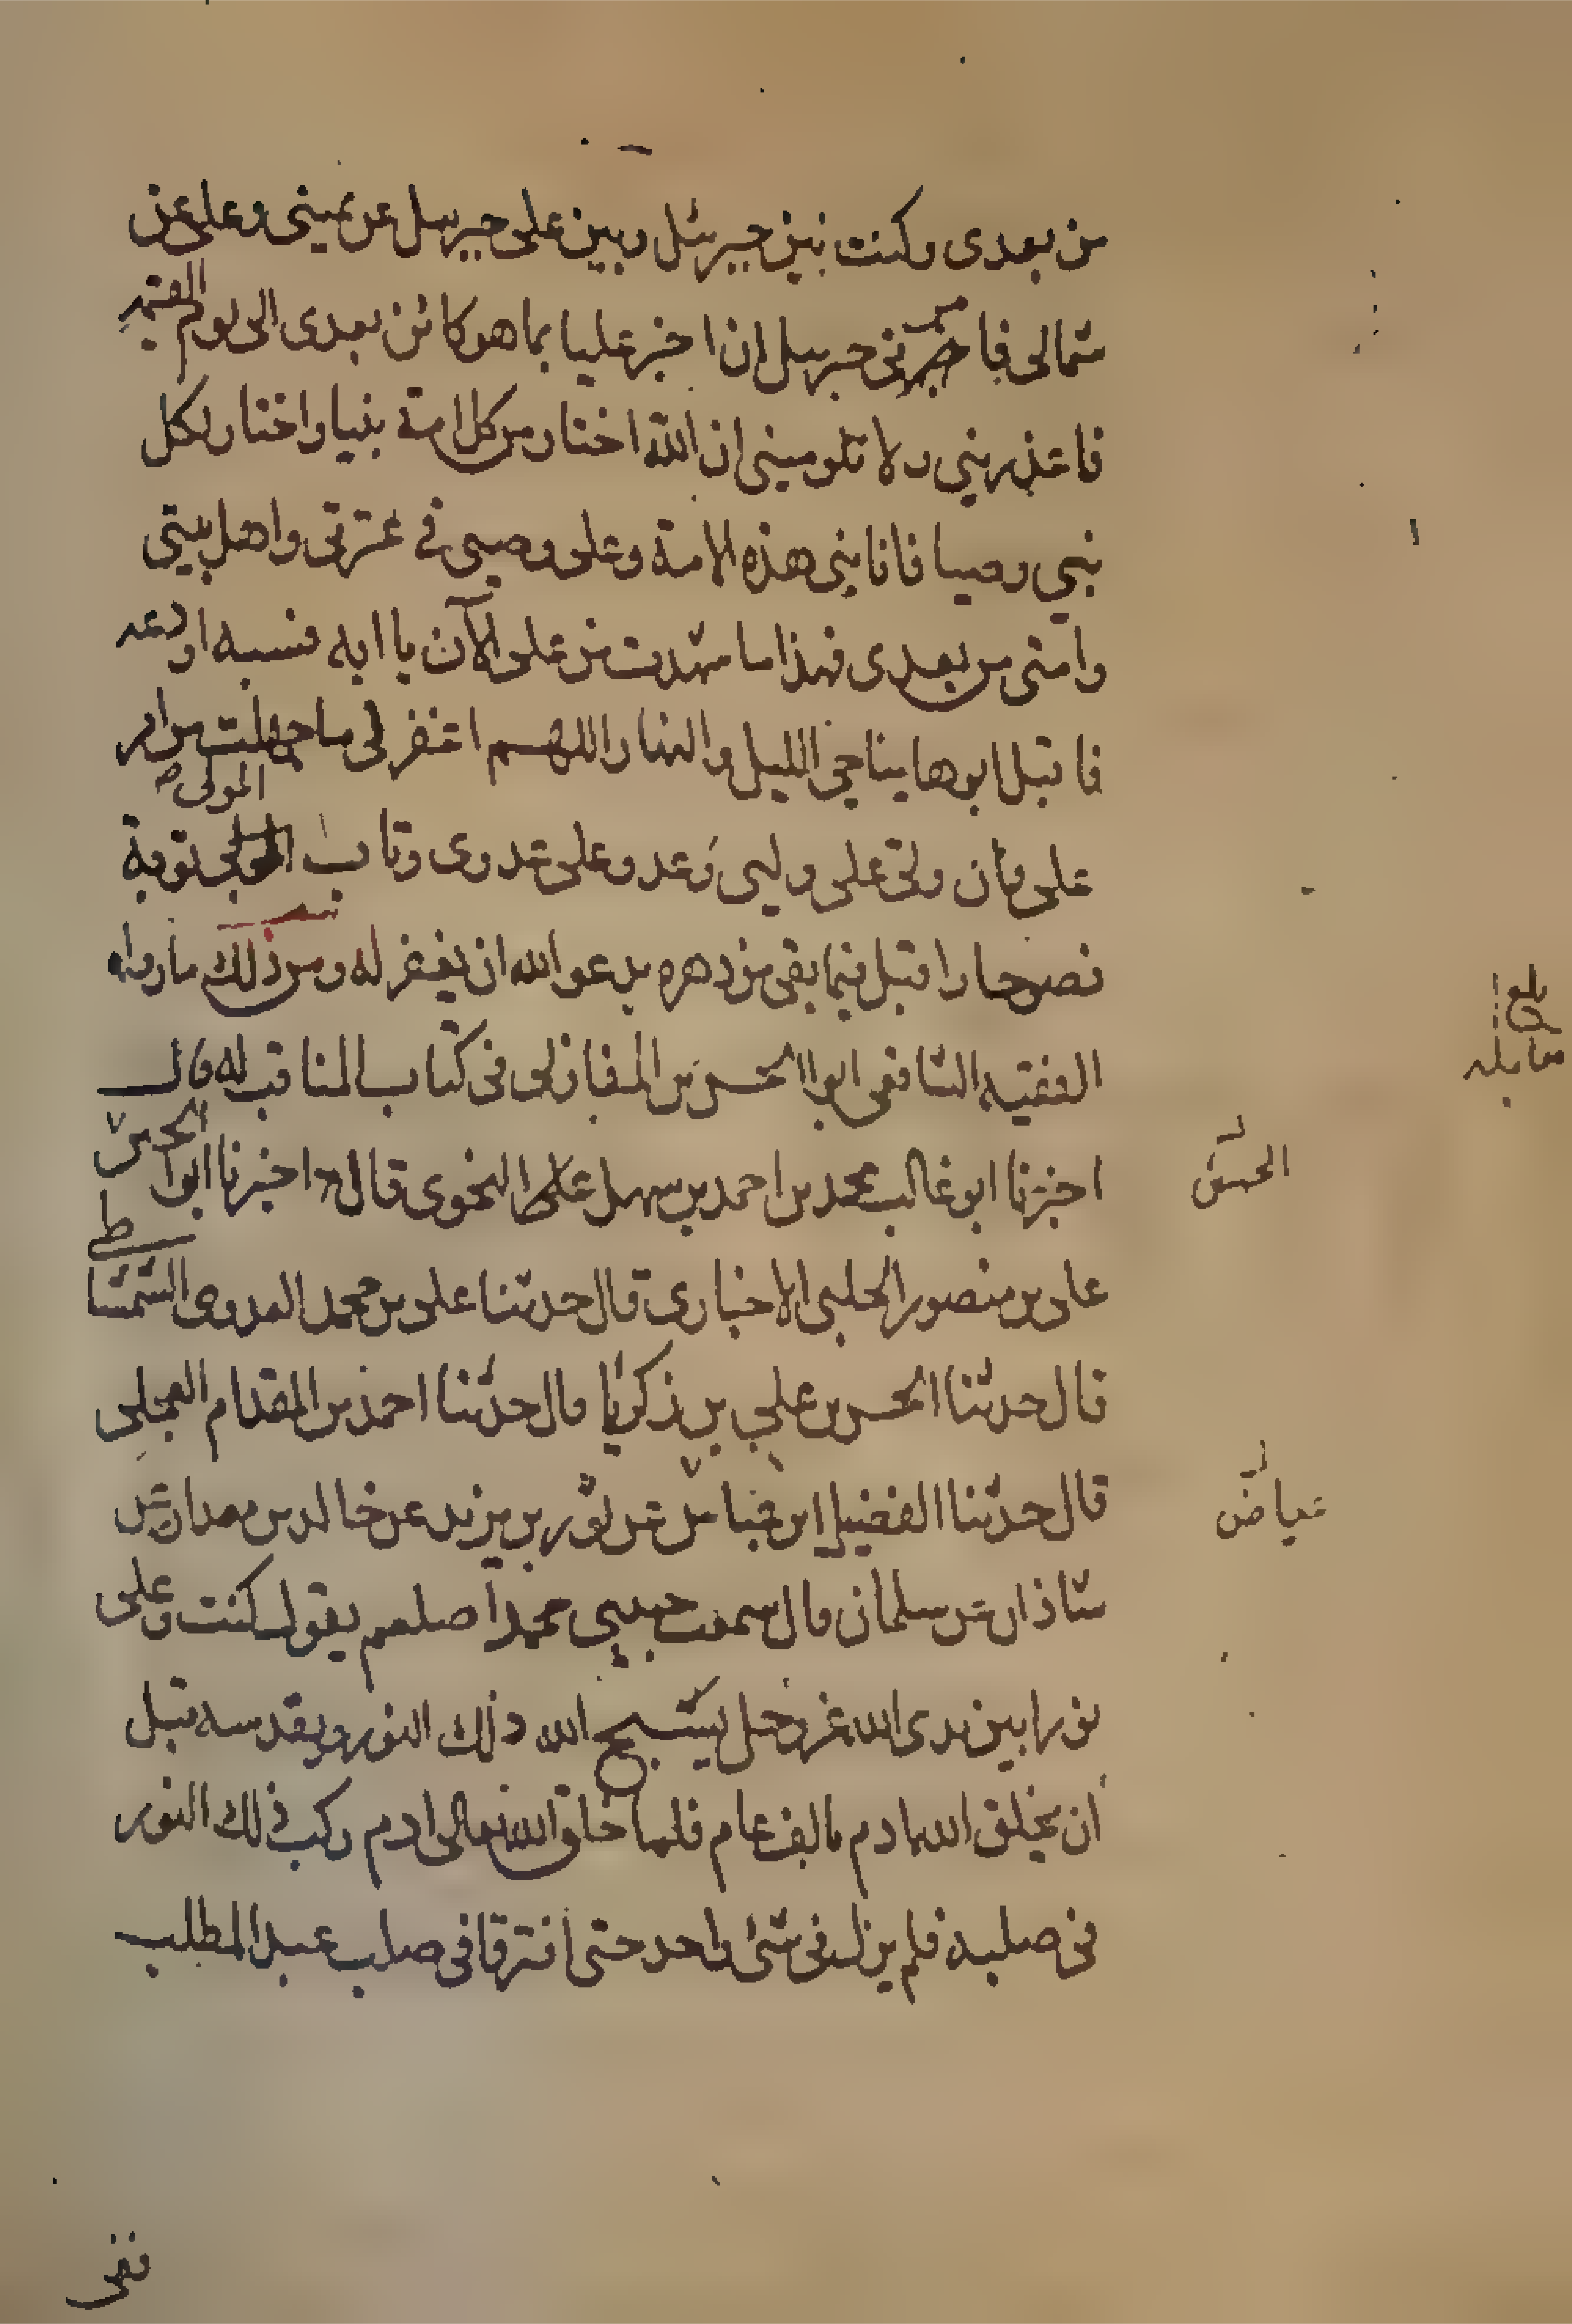 من بعدى وكنت بين جبرئيل وبين على جبرئيل عن يمينى وعلى عن
شمالى فامرنى جبرئيل ان اخبر عليا بما هو كائن بعدى الى يوم القيمة
فاعذرينى ولا تلومينى ان الله اختار من كل امة نبيا واختار لكل
نبي وصيا فانا نبى هذه الامة وعلى وصيى فى عترتى واهل بيتى
وامتى من بعدى فهذا ما شهدت من على الآن يا ابه فسبه او دعه
فاقبل ابوها يناجى الليل والنهار اللهم اغفر لى ما جهلت من امر
على فان ولى على وليى وعدو على عدوى وتاب المولى توبة
نصوحا واقبل فيما بقى من دهره يدعو الله ان يغفر له ومن ذلك ما رواه
الفقيه الشافعى ابو الحسن بن المغازلى فى كتاب المناقب له قال
اخبرنا ابو غالب محمد بن احمد بن سهل النحوى قال اخبرنا ابو الحسن
على بن منصور الحلبى الاخبارى قال حدثنا على بن محمد العدوى الشمشاطى
قال حدثنا الحسن بن علي بن زكريا قال حدثنا احمد بن المقدام العجلى
قال حدثنا الفضيل بن عياض عن ثور بن يزيد عن خالد بن معدان عن
شاذان عن سلمان قال سمعت حبيبى محمدا صلعم يقول كنت وعلى
نورا بين يدى الله عز وجل يسبح الله ذلك النور ويقدسه قبل
ان يخلق الله ادم بالف عام فلما خلق الله تعالى ادم ركب ذلك النور
فى صلبه فلم يزل فى شئ واحد حتى افترقا فى صلب عبد المطلب
بلغ
مقابلة
الحسن
عياض
ففى